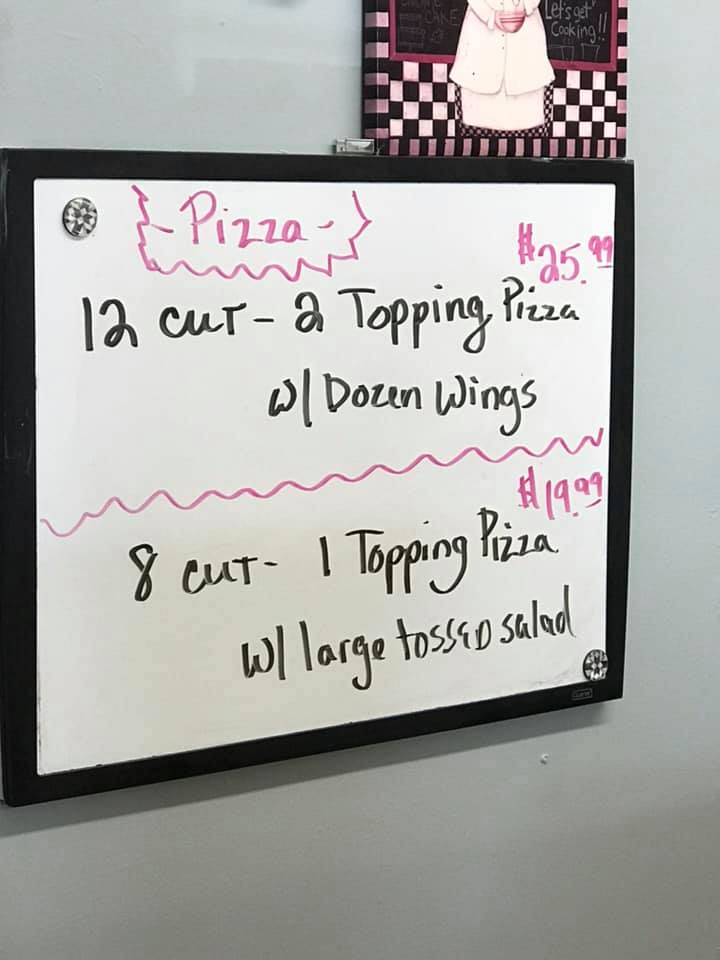 CAKE
Let's get
Cooking!!
- Pizza -
$25.99
12 cut - 2 Topping Pizza
w/ Dozen Wings
$19.99
8 cut - 1 Topping Pizza
w/ large tossed salad